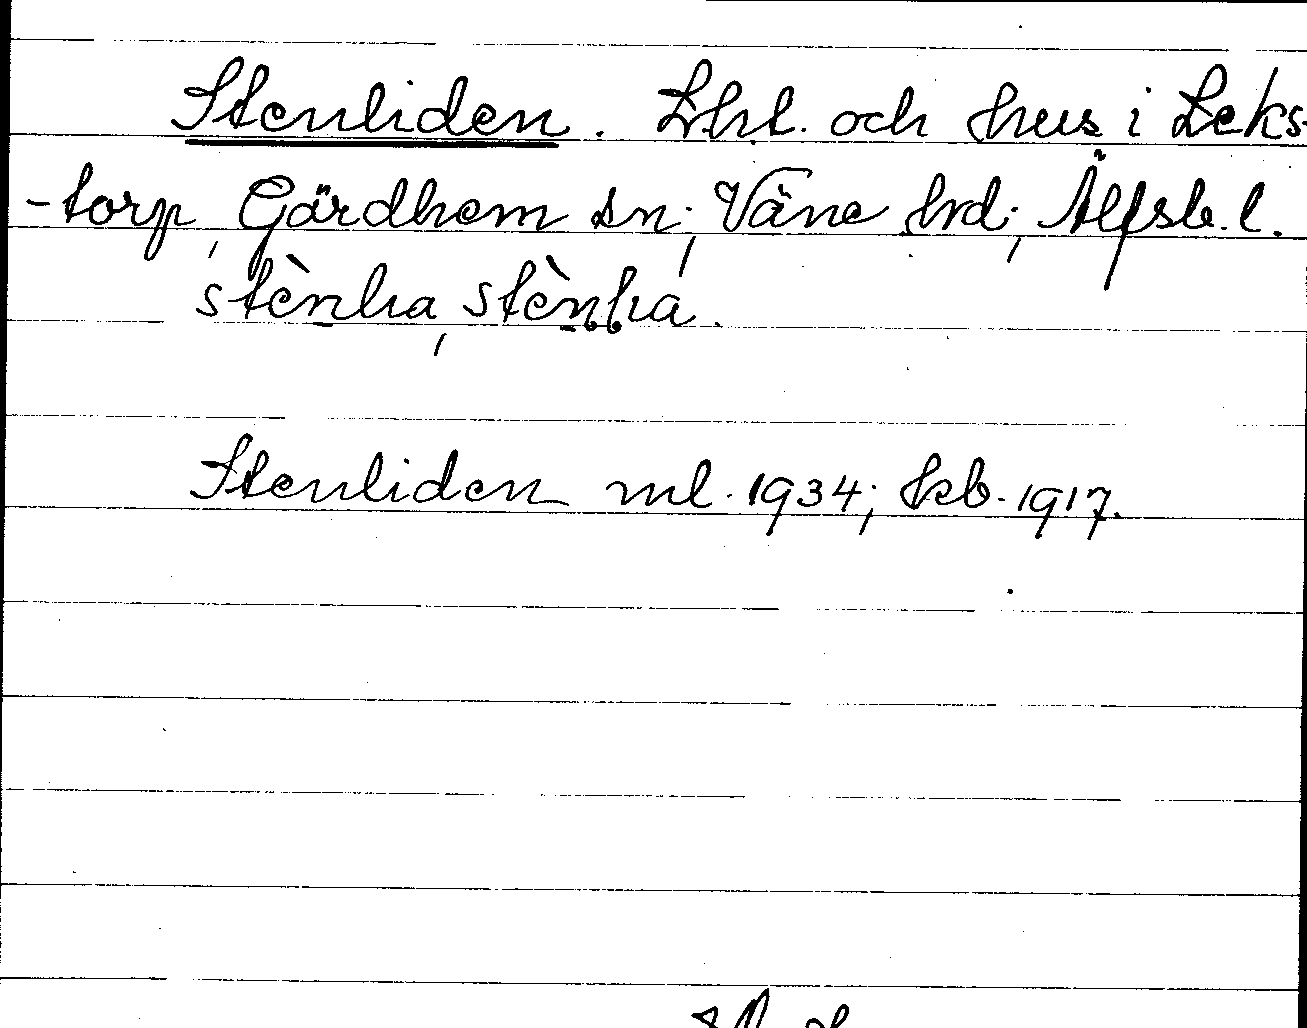 Stenliden. Lht. och hus i Leks-
-torp, Gärdhem sn; Väne hrd; Älfsb. l.
stènlia, stènlia.
Stenliden ml. 1934; kb. 1917.